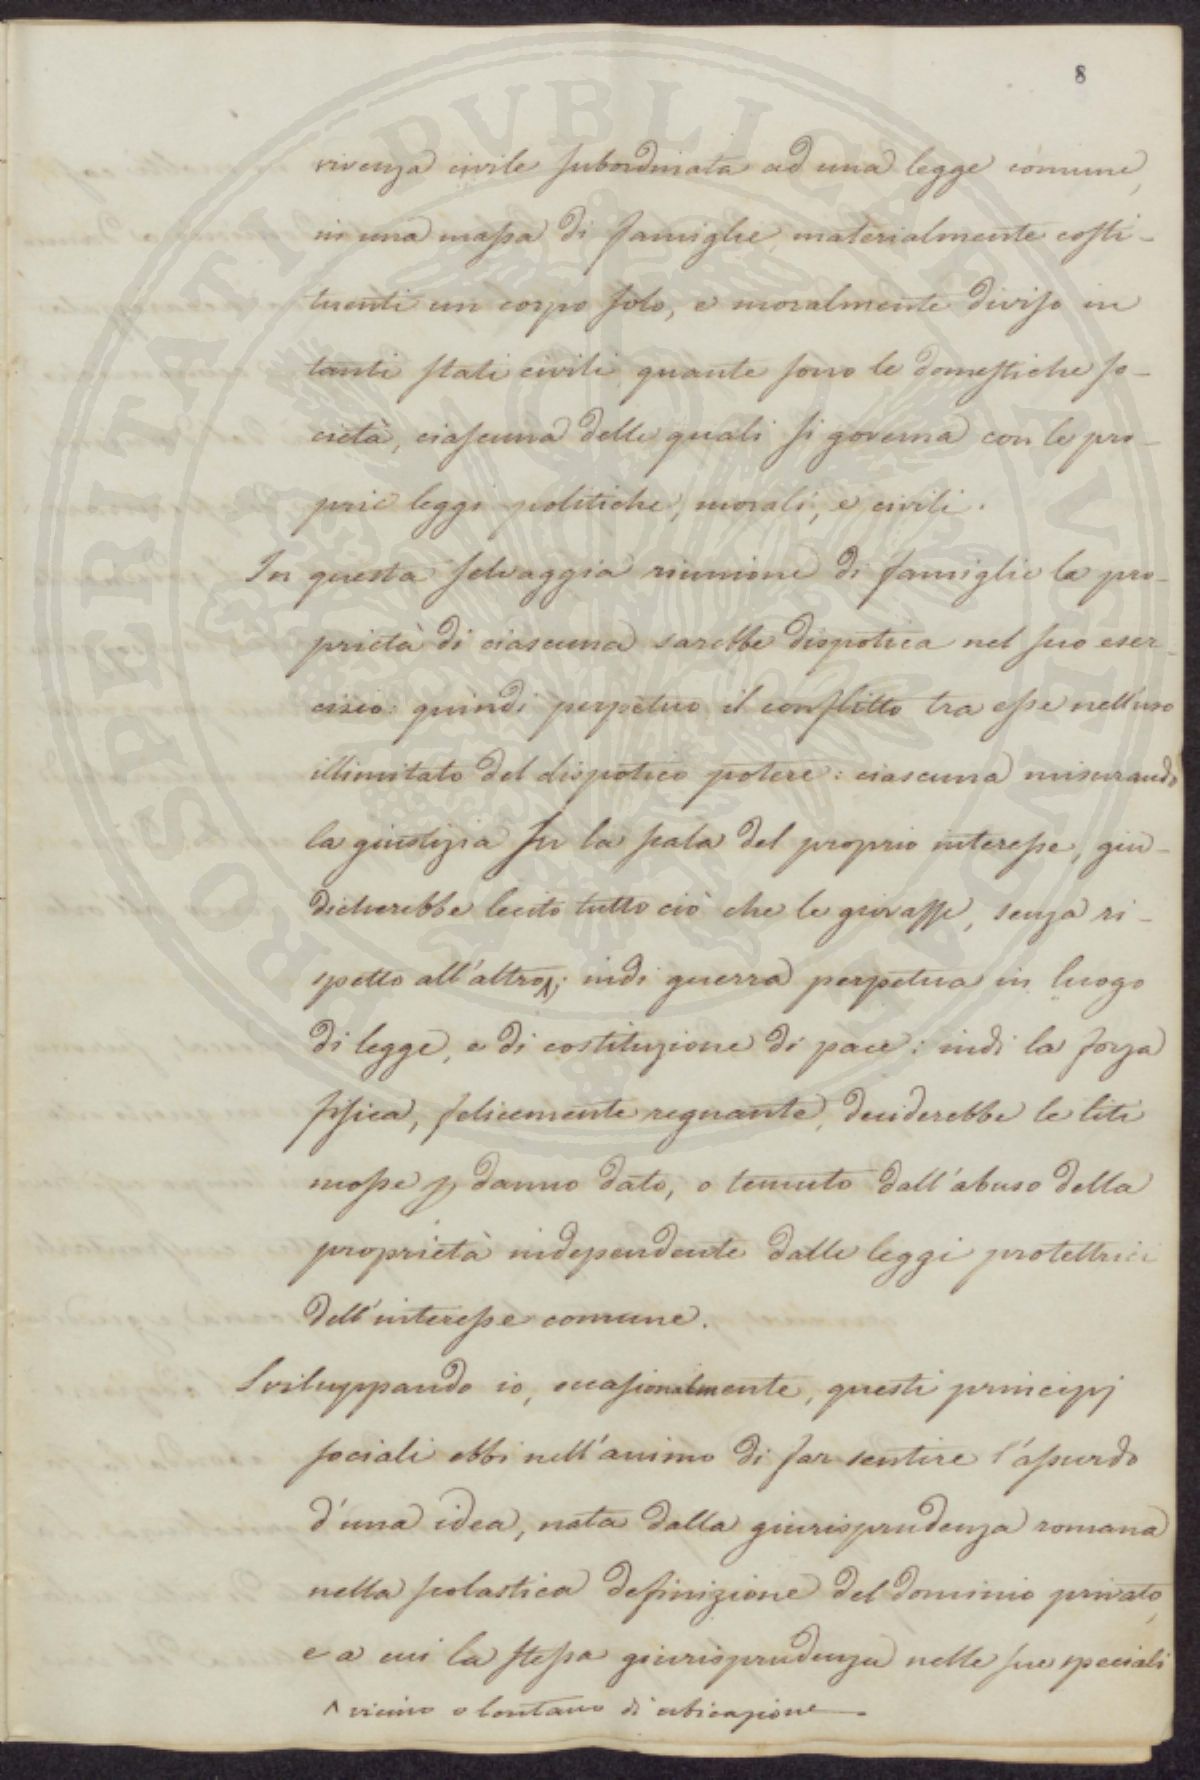 8
vivenza civile subordinata ad una legge comune,
in una massa di famiglie materialmente costi-
tuenti un corpo solo, e moralmente diviso in
tanti stati civili quante sono le domestiche so-
cietà, ciascuna delle quali si governa con le pro-
prie leggi politiche, morali, e civili.
In questa selvaggia riunione di famiglie la pro-
prietà di ciascuna sarebbe dispotica nel suo eser-
cizio: quindi perpetuo il conflitto tra esse nell'uso
illimitato del dispotico potere: ciascuna misurando
la giustizia su la scala del proprio interesse, giu-
dicherebbe lecito tutto ciò che le giovasse, senza ri-
spetto all'altro^; indi guerra perpetua in luogo
di legge, e di costituzione di pace: indi la forza
fisica, felicemente regnante, deciderebbe le liti
mosse p danno dato, o temuto dall'abuso della
proprietà independente dalle leggi protettrici
dell'interesse comune.
Sviluppando io, occasionalmente, questi principj
sociali ebbi nell'animo di far sentire l'assurdo
d'una idea, nata dalla giurisprudenza romana
nella scolastica definizione del dominio privato,
e a cui la stessa giurisprudenza nelle sue speciali
^ vicino o lontano di ubicazione.
PROSPERITATI PVBLICAE AVGENDAE